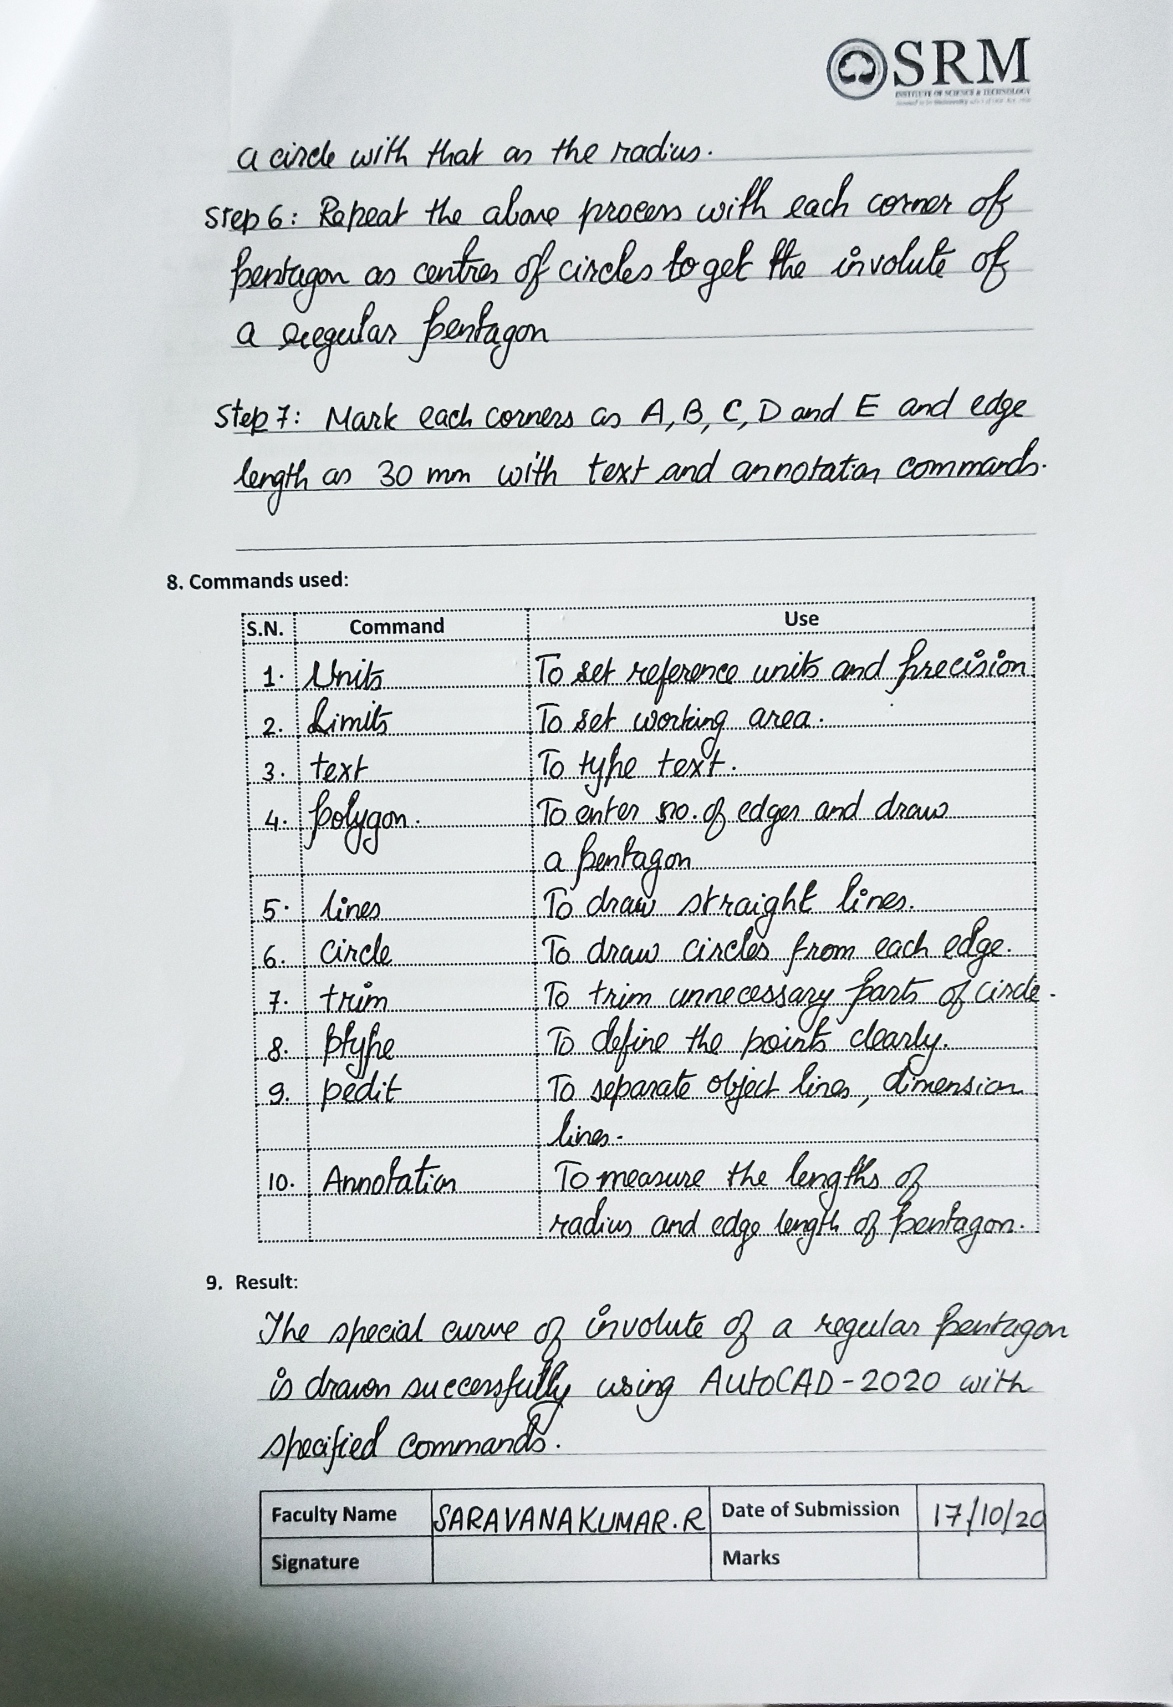 SRM
INSTITUTE OF SCIENCE & TECHNOLOGY
a circle with that as the radius.
Step 6: Repeat the above process with each corner of
pentagon as centres of circles to get the involute of
a regular pentagon
Step 7: Mark each corners as A, B, C, D and E and edge
length as 30 mm with text and annotation commands.
8. Commands used:
S.N. Command Use
1. Units To set reference units and precision
2. Limits To set working area.
3. text To type text.
4. polygon. To enter no. of edges and draw
a pentagon
5. lines To draw straight lines.
6. circle To draw circles from each edge.
7. trim To trim unnecessary parts of circle.
8. ptype To define the points clearly.
9. pedit To separate object lines, dimension
lines.
10. Annotation To measure the lengths of
radius and edge length of pentagon.
9. Result:
The special curve of involute of a regular pentagon
is drawn successfully using AutoCAD-2020 with
specified commands.
Faculty Name SARAVANAKUMAR.R Date of Submission 17/10/20
Signature Marks